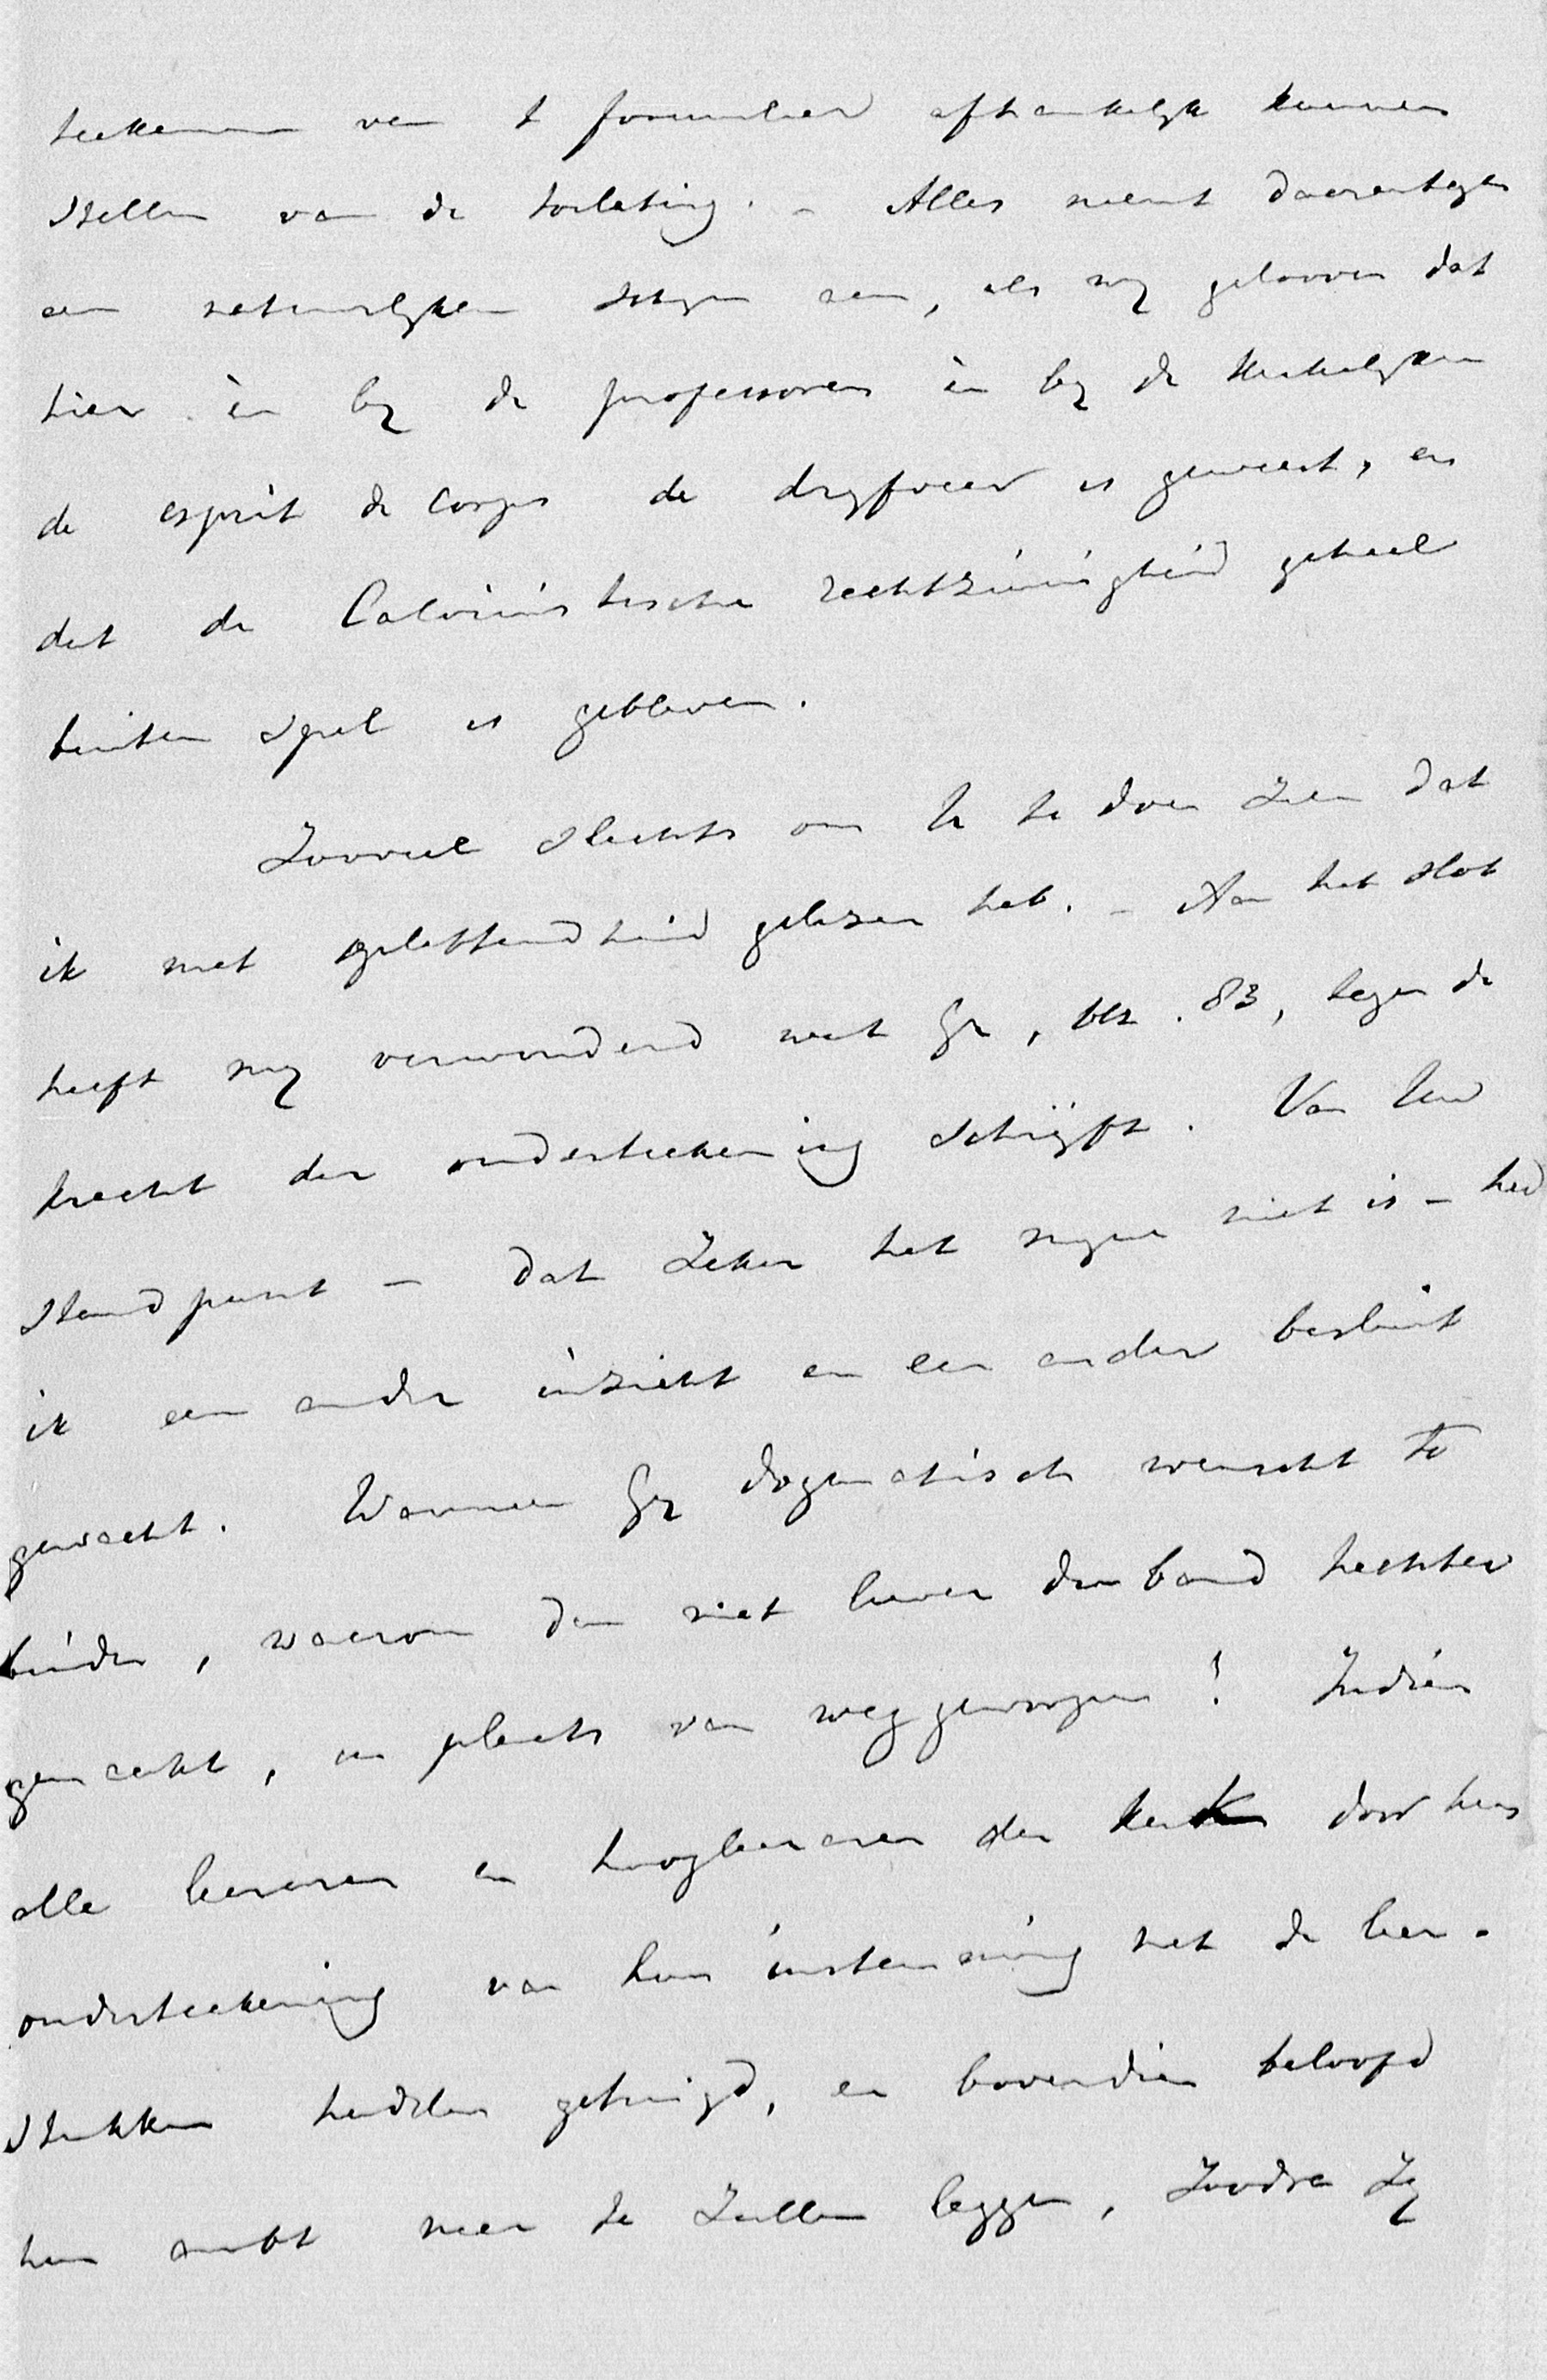 teekenen van 't formulier afhankelijk kunnen
stellen van de toelating. – Alles neemt daarentegen
een natuurlijken aan, als wij gelooven dat
hier èn bij de professoren èn bij de kerkelijken
de esprit de corps de drijfveer is geweest, en
dat de Calvinistische rechtzinnigheid geheel
buiten spel is gebleven.
Zooveel slechts om U te doen zien dat
ik met oplettendheid gelezen heb. – Aan het slot
heeft mij verwonderd wat Gij, blz. 83, tegen de
kracht der onderteekening schrijft. Van Uw
standpunt – dat zeker het mijne niet is – had
ik een ander inzicht en een ander besluit
gewacht. Wanneer Gij dogmatisch wenscht te
binden, waarom dan niet liever den band hechter
gemaakt, in plaats van weggeworpen! Indien
alle leeraren en hoogleeraren der kerk door hun
onderteekening van hun instemming met de leer-
stukken hadden getuigd, en bovendien beloofd
hun ambt neer te zullen leggen, zoodra zij